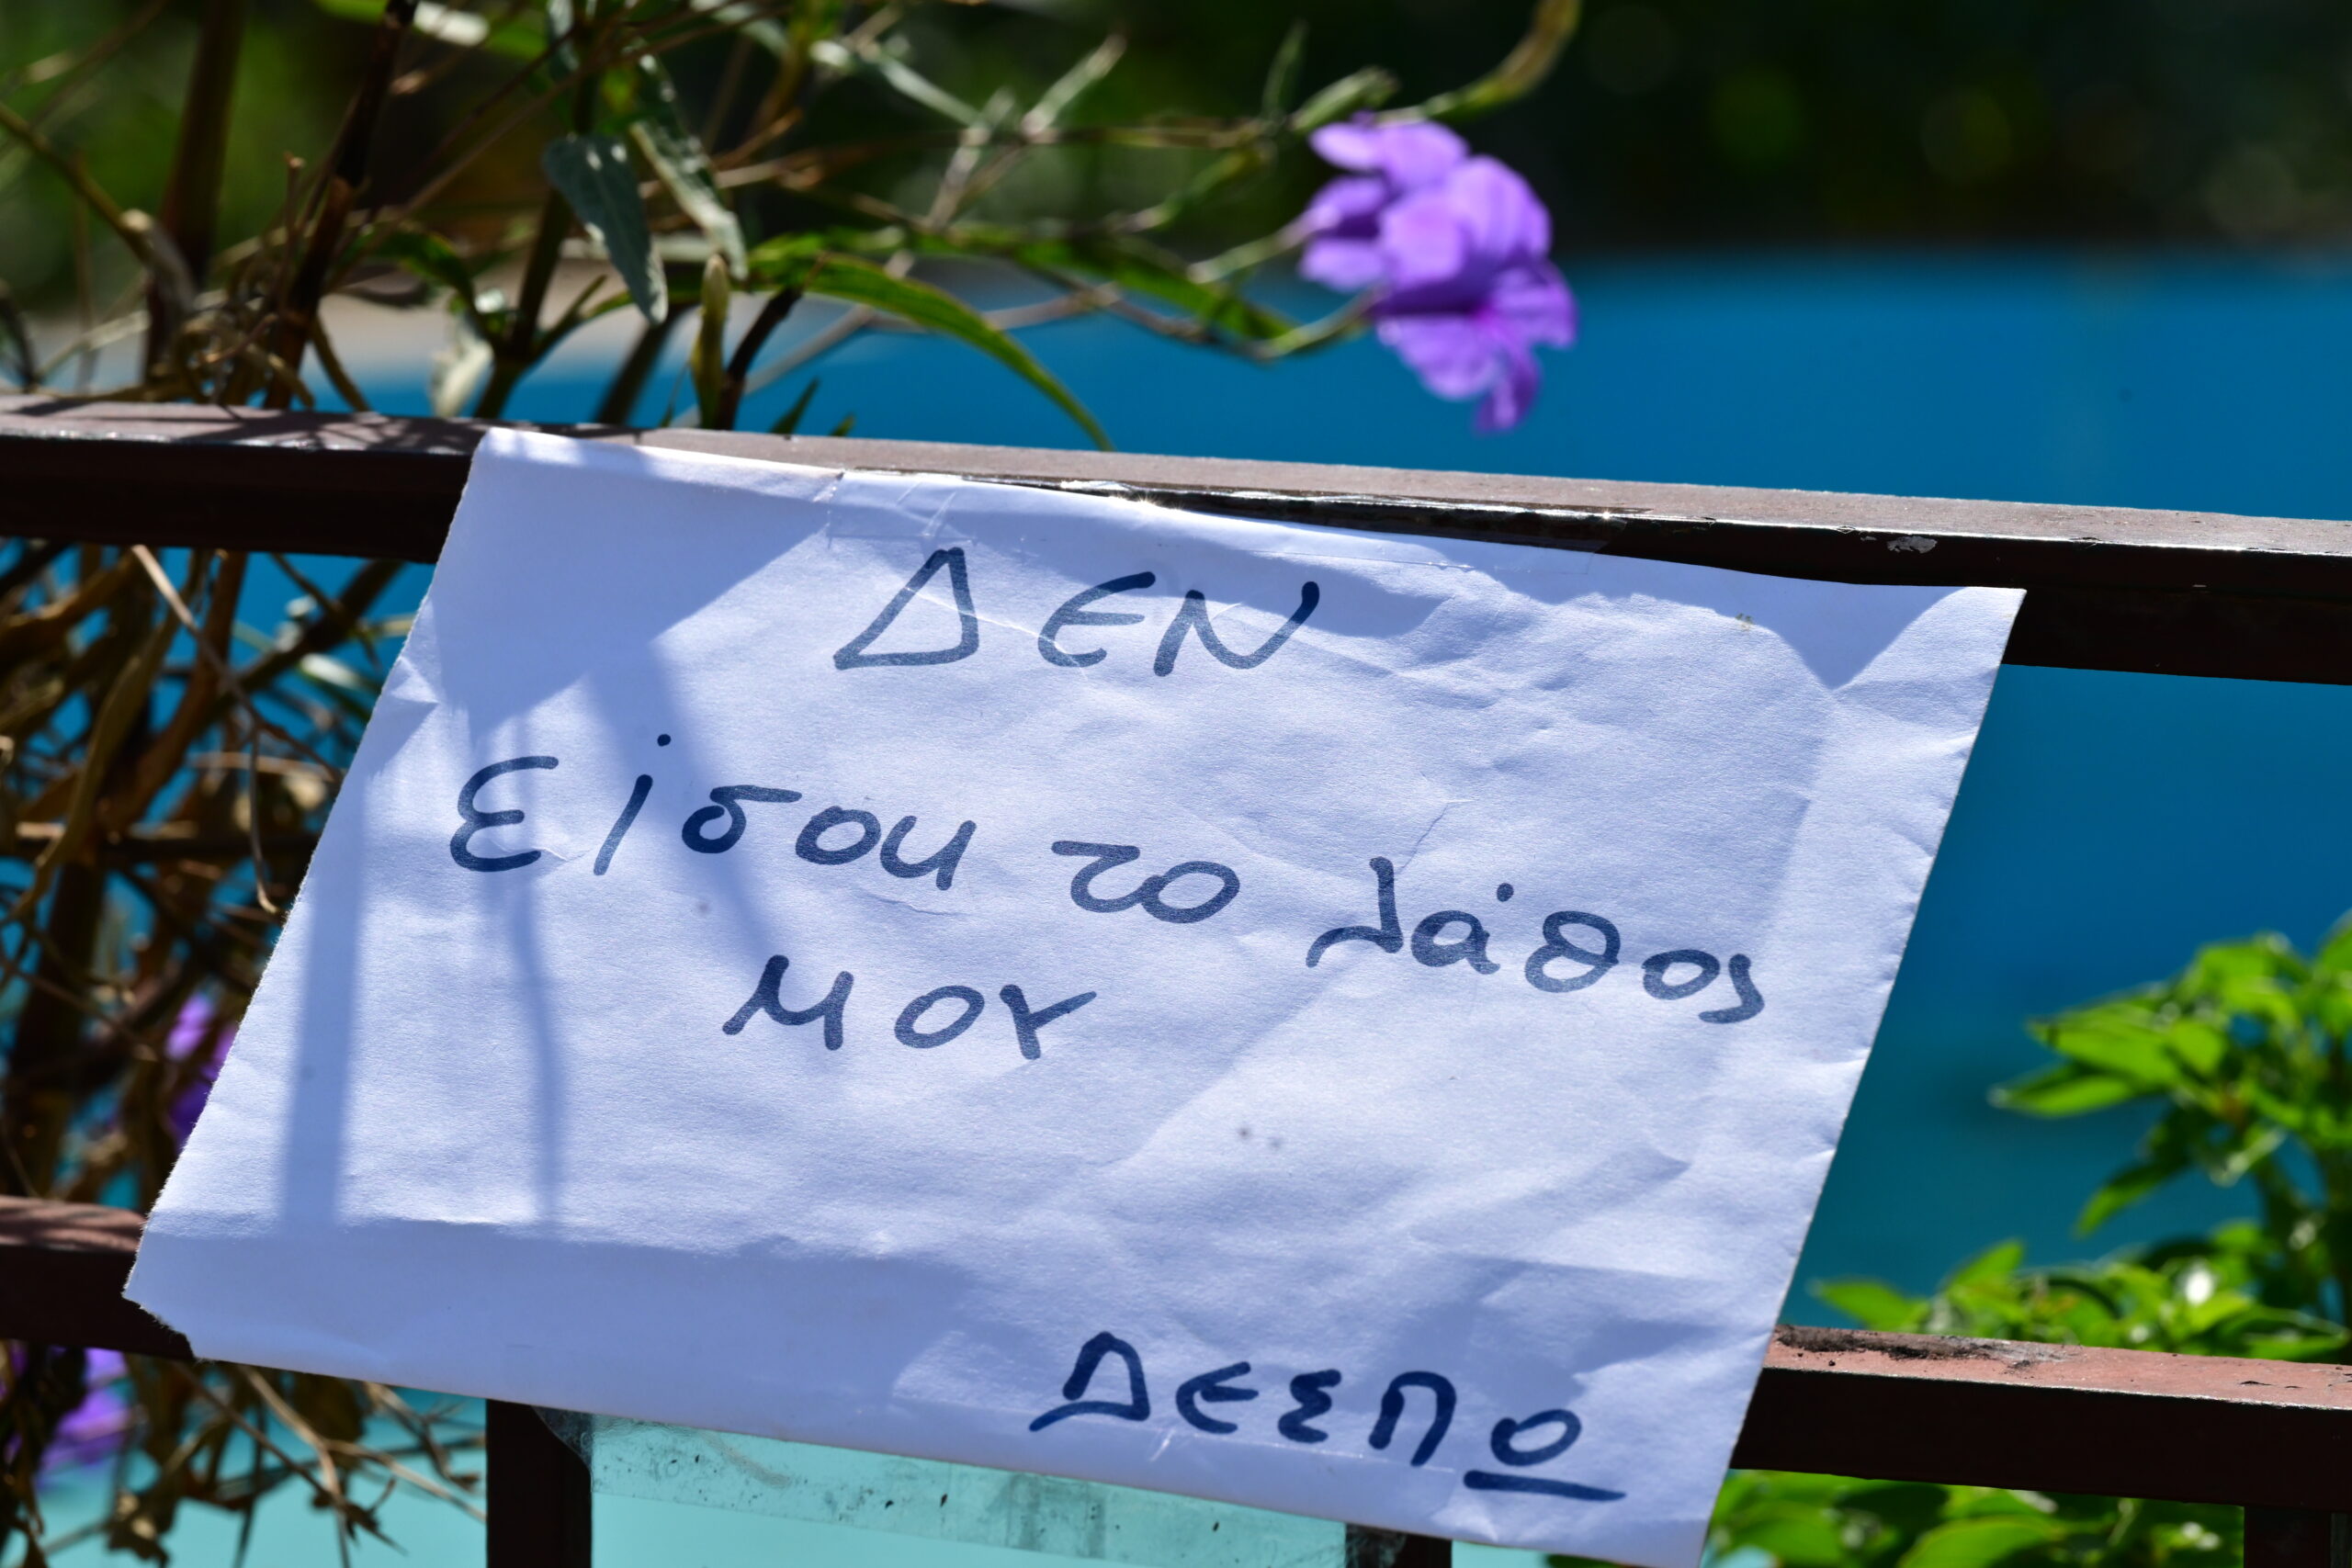 ΔΕΝ
Είσαι το λάθος
ΜΟΥ
ΔΕΣΠΩ